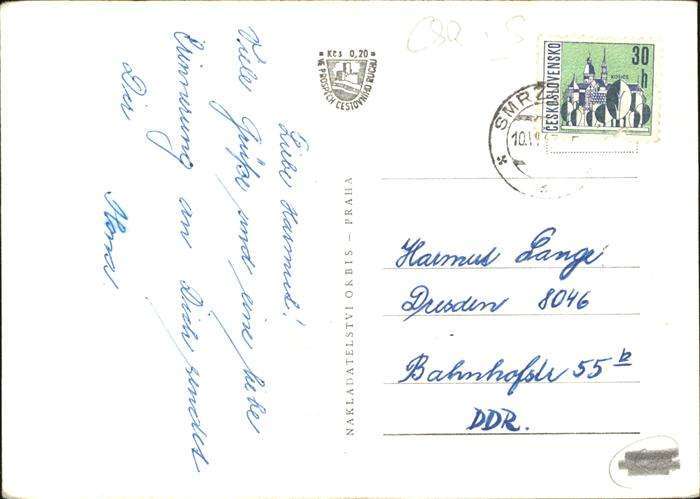 Liebe Harmut!
Viele Grüße und eine liebe
Erinnerung an Dich sendet
Dir
Kčs 0,20
VE PROSPĚCH CESTOVNÍHO RUCHU
NAKLADATELSTVÍ ORBIS – PRAHA
ČSR
S
ČESKOSLOVENSKO
30
h
KOŠICE
SMRŽ
10.II
Harmut Lange
Dresden 8046
Bahnhofstr 55 b
DDR.